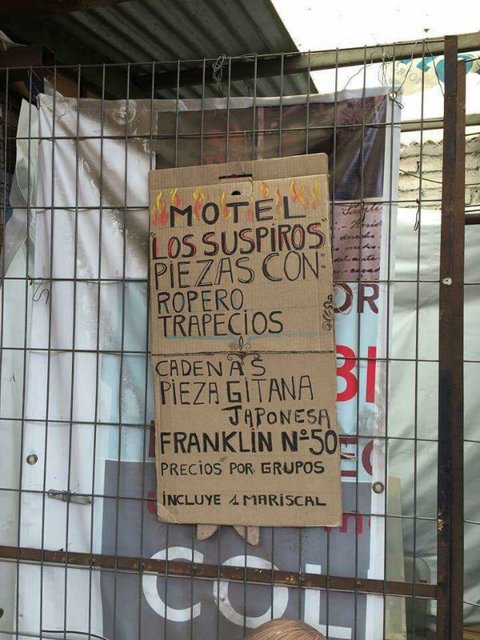 MOTEL
"LOS SUSPIROS"
PIEZAS CON:
ROPERO
TRAPECIOS
CADENAS
PIEZA GITANA
JAPONESA
FRANKLIN Nº50
PRECIOS POR GRUPOS
INCLUYE 1 MARISCAL
OR
BI
COL